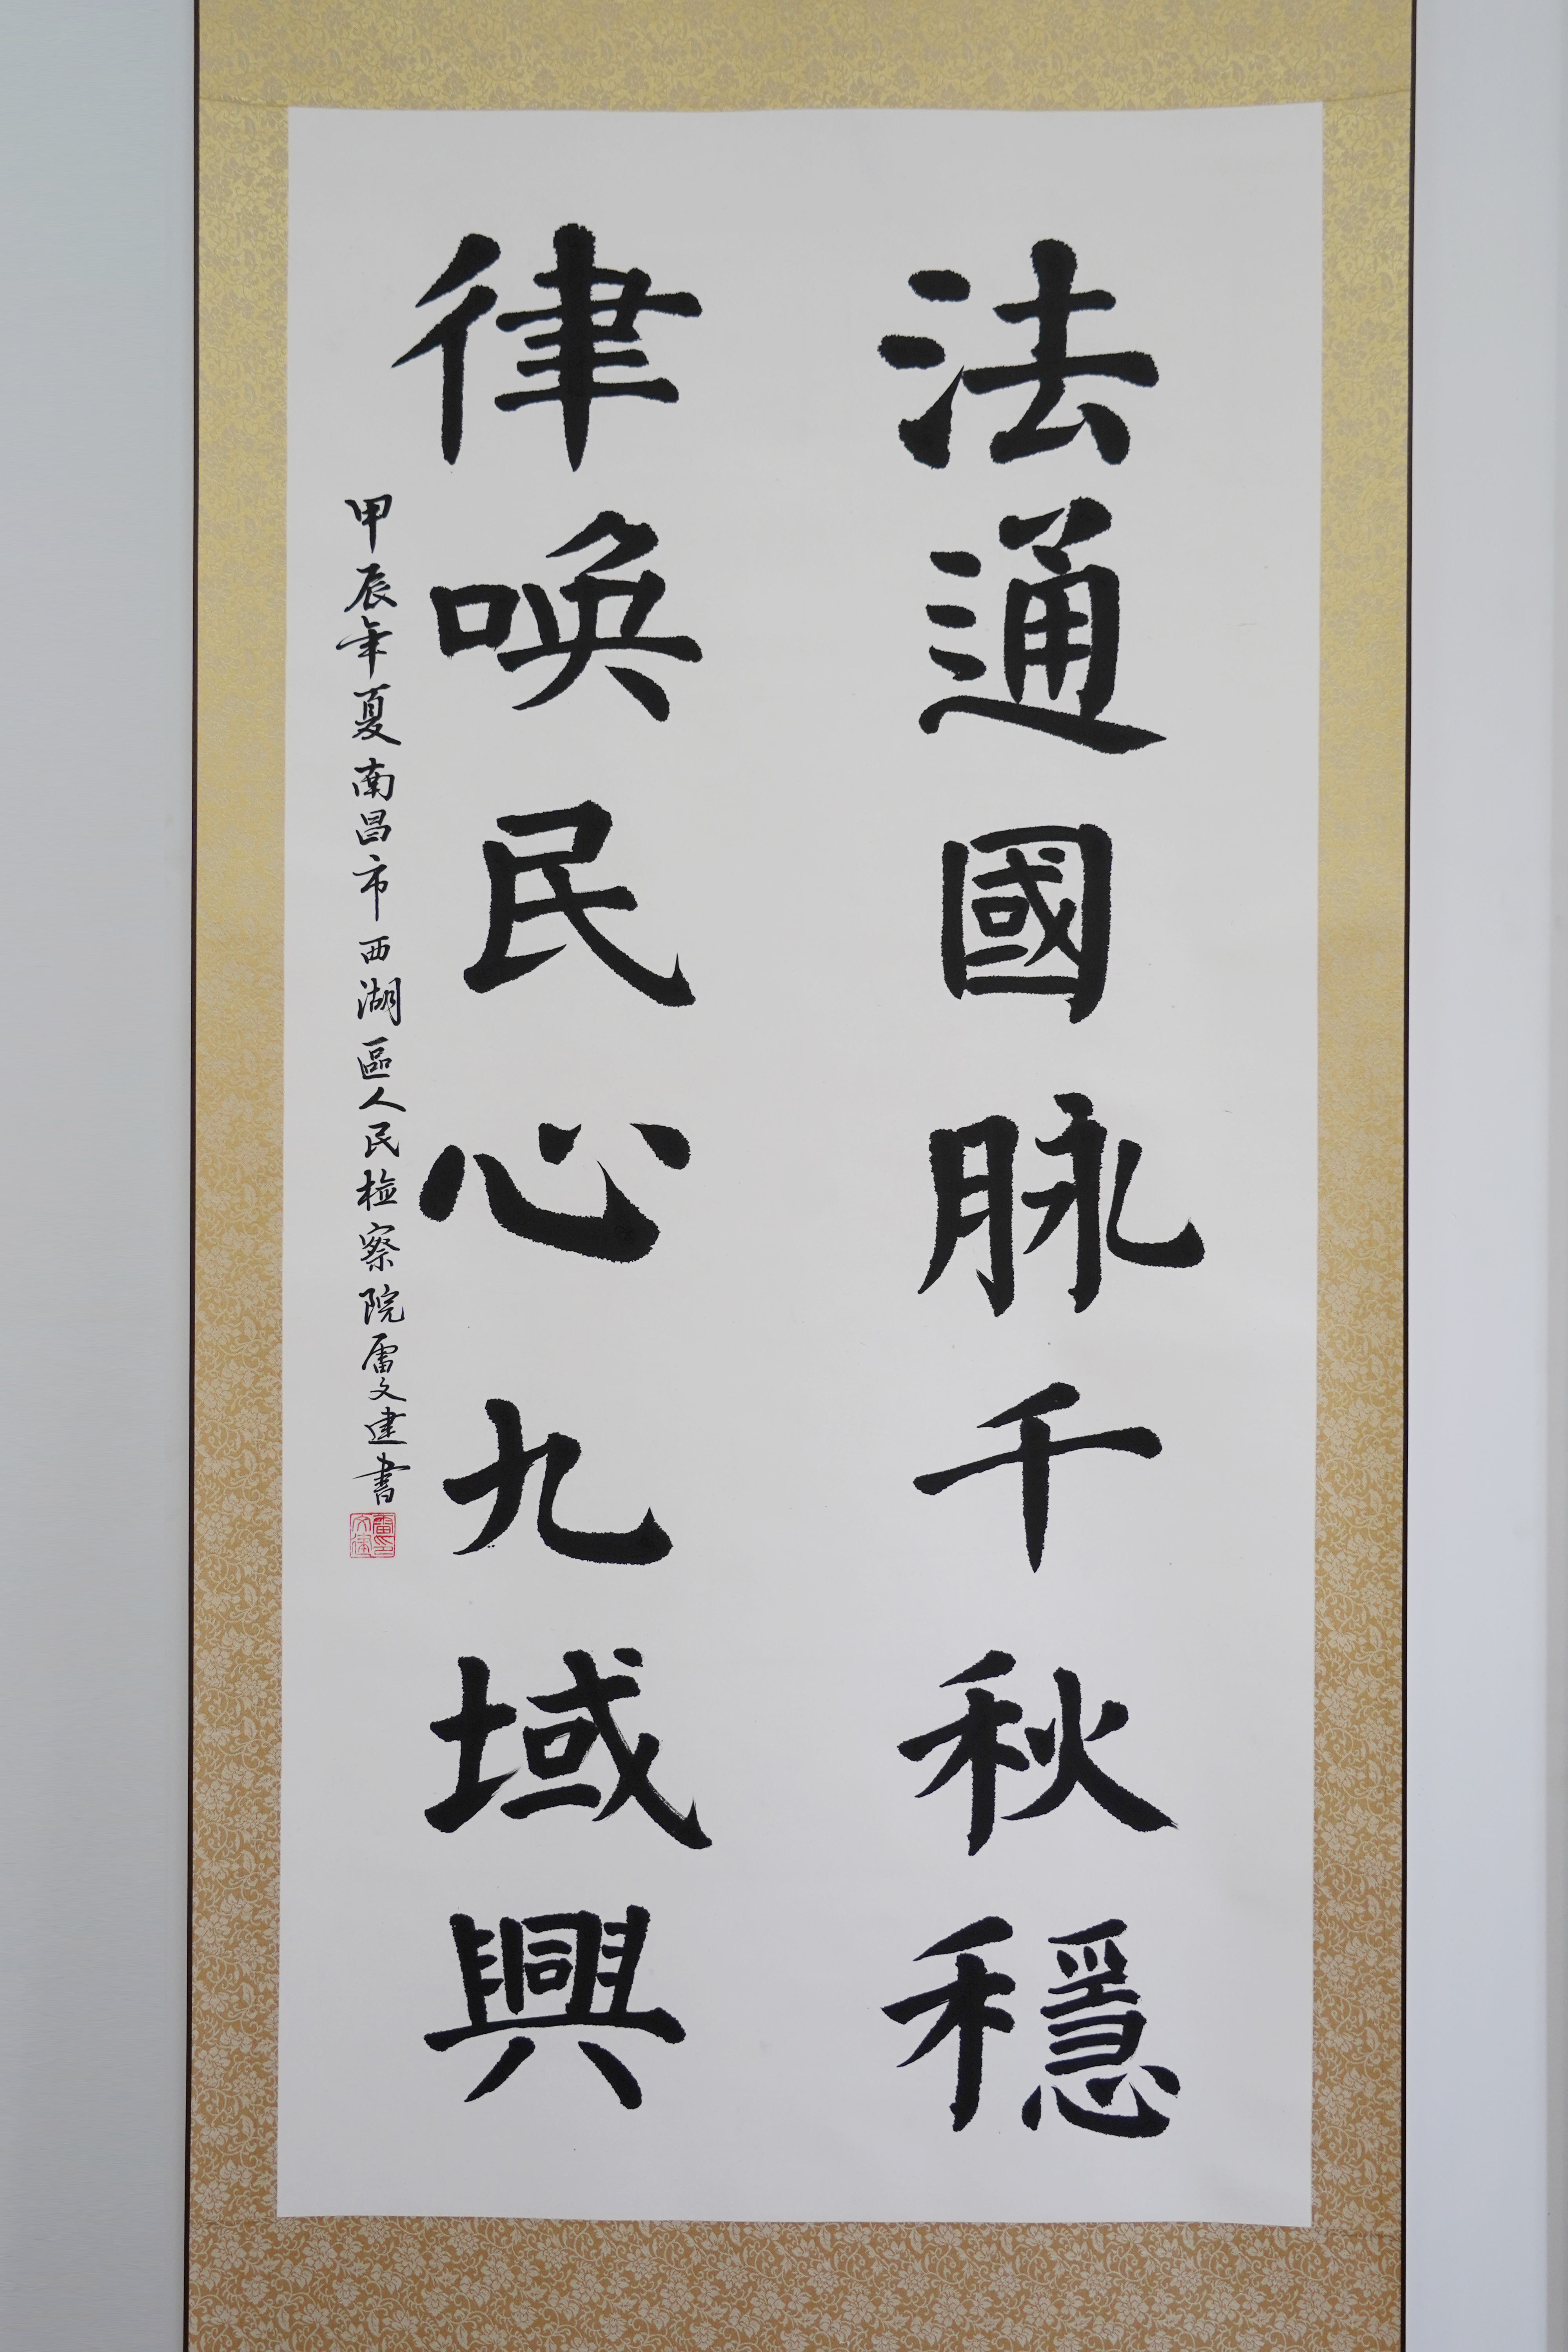 法通國脉千秋穩
律唤民心九域興
甲辰年夏南昌市西湖區人民检察院雷文建書